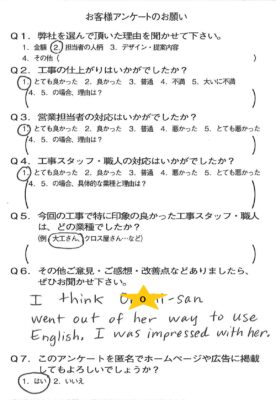 お客様アンケートのお願い
Q1. 弊社を選んで頂いた理由を聞かせて下さい。
1. 金額 2. 担当者の人柄 3. デザイン・提案内容
4. その他( )
Q2. 工事の仕上がりはいかがでしたか?
1. とても良かった 2. 良かった 3. 普通 4. 不満 5. 大いに不満
(4. 5. の場合、理由は? )
Q3. 営業担当者の対応はいかがでしたか?
1. とても良かった 2. 良かった 3. 普通 4. 悪かった 5. とても悪かった
(4. 5. の場合、理由は? )
Q4. 工事スタッフ・職人の対応はいかがでしたか?
1. とても良かった 2. 良かった 3. 普通 4. 悪かった 5. とても悪かった
(4. 5. の場合、具体的な業種と理由は? )
Q5. 今回の工事で特に印象の良かった工事スタッフ・職人
は、どの業種でしたか?
(例 大工さん、クロス屋さん…など)
Q6. その他ご意見・ご感想・改善点などありましたら、
ぜひお聞かせ下さい。
I think -san
went out of her way to use
English. I was impressed with her.
Q7. このアンケートを匿名でホームページや広告に掲載
してもよろしいでしょうか?
1. はい 2. いいえ